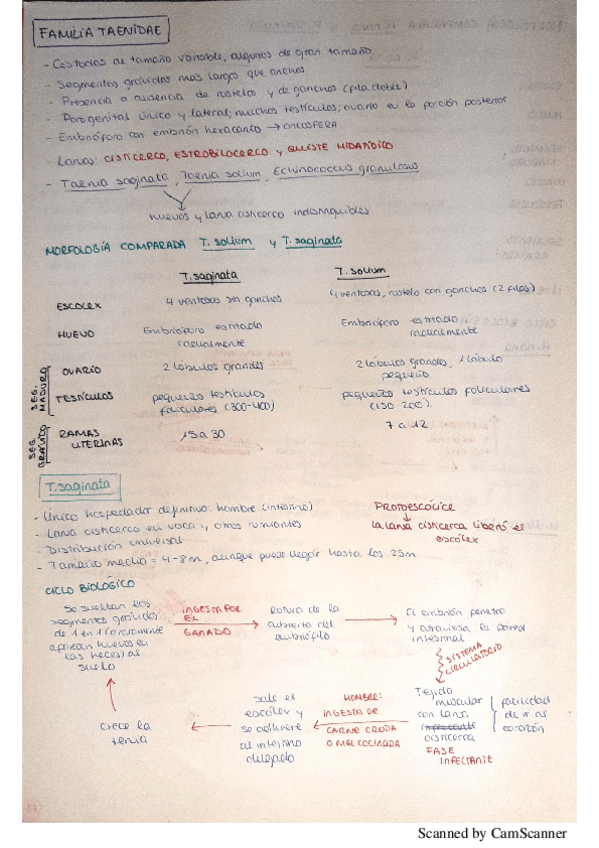 FAMILIA TAENIDAE
- Cestodos de tamaño variable, algunos de gran tamaño
- Segmentos grávidos más largo que anchos
- Presencia o ausencia de rostelos y de ganchos (fila doble)
- Poro genital único y lateral; muchos testículos; ovario en la porción posterior
- Embrióforo con embrión hexacanto → ONCOSFERA
- Larvas: CISTICERCO, ESTROBILOCERCO y QUISTE HIDATÍDICO
- Taenia saginata, Taenia solium, Echinococcus granulosus
huevos y larva cisticerco indistinguibles
MORFOLOGÍA COMPARADA T. solium y T. saginata
T. saginata T. solium
ESCOLEX 4 ventosas sin ganchos 4 ventosas, rostelo con ganchos (2 filas)
HUEVO Embrióforo estriado radialmente Embrióforo estriado radialmente
SEG. MADURO
OVARIO 2 lóbulos grandes 2 lóbulos grandes, 1 lóbulo pequeño
TESTÍCULOS pequeños testículos foliculares (300-400) pequeños testículos foliculares (150-200).
SEG. GRÁVIDO
RAMAS UTERINAS 15 a 30 7 a 12
T. saginata
- Único hospedador definitivo: hombre (intestino)
- Larva cisticerco en vaca y otros rumiantes
- Distribución universal
- Tamaño medio = 4-8m, aunque puede llegar hasta los 25m
PROTOESCÓLICE
la larva cisticerca libera el
escólex
CICLO BIOLÓGICO
Se sueltan los
segmentos grávidos
de 1 en 1 o raramente
aparecen huevos en
las heces) al
suelo
INGESTA POR
EL
GANADO
Rotura de la
cubierta del
embriófilo
El embrión penetra
y atraviesa la pared
intestinal
SISTEMA
CIRCULATORIO
Tejido
muscular
con larva
cisticerca
FASE
INFECTANTE
facilidad
de ir al
corazón
HOMBRE:
INGESTA DE
CARNE CRUDA
O MAL COCINADA
Sale el
escólex y
se adhiere
al intestino
delgado
Crece la
tenia
Scanned by CamScanner